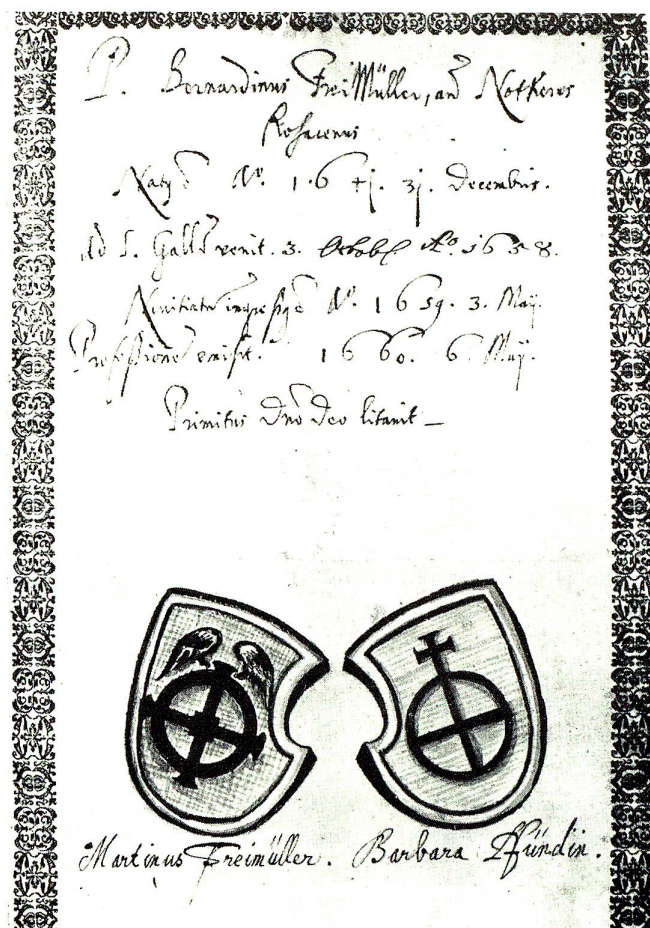 P. Bernardinus FreiMüller, añ Notkerus
Rosacenus
Natꝰ ē Aº. 1641. 31. Decembris.
Ad S. Gallū venit. 3. Octob Aº. 1658.
Novitiatū ingressꝰ ē Aº. 1659. 3. Maij.
Professionē emisit. 1660. 6. Maij.
Primitias Dño Deo litavit
Martinus Freimüller. Barbara Pfündin.